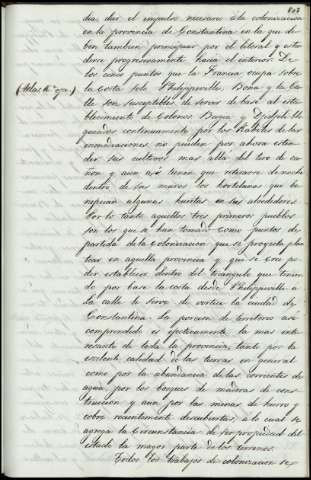 dia dar el impulso necesario á la colonizacion
en la provincia de Constantina en la que de-
ben tambien principiar por el litoral y esten-
derse progresivamente hacia el interior. De
los cinco puntos que la Francia ocupa sobre
(Atlas
la Costa solo Philippeville, Bona y la Ca-
lle son susceptibles de servir de base al esta-
blecimiento de Colonos. Bugia y Djidjeli blo-
queados continuamente por los Kabilas de las
inmediaciones no pueden por ahora esten-
der sus cultivos mas allá del tiro de ca-
ñon y aun asi tienen que retirarse de noche
dentro de sus muros los hortelanos que be-
nefician algunas huertas en los alrededores.
Por lo tanto aquellos tres primeros pueblos
son los que se han tomado como puntos de
partida de la Colonizacion que se proyecta plan-
tear en aquella provincia y que se cree po-
der establecer dentro del triángulo que tenien-
do por base la costa desde Philippeville a
la calle le sirve de vertice la ciudad de
Constantina. La porcion de territorio asi
comprendido es efectivamente la mas inte-
resante de toda la provincia, tanto por la
escelente calidad de las tierras en general
como por la abundancia de las corrientes de
agua, por los bosques de maderas de cons-
truccion y aun por las minas de hierro y
cobre recientemente descubiertas, á lo cual se
agrega la Circunstancia de ser propiedad del
estado la mayor parte de los terrenos.
Todos los trabajos de colonizacion se